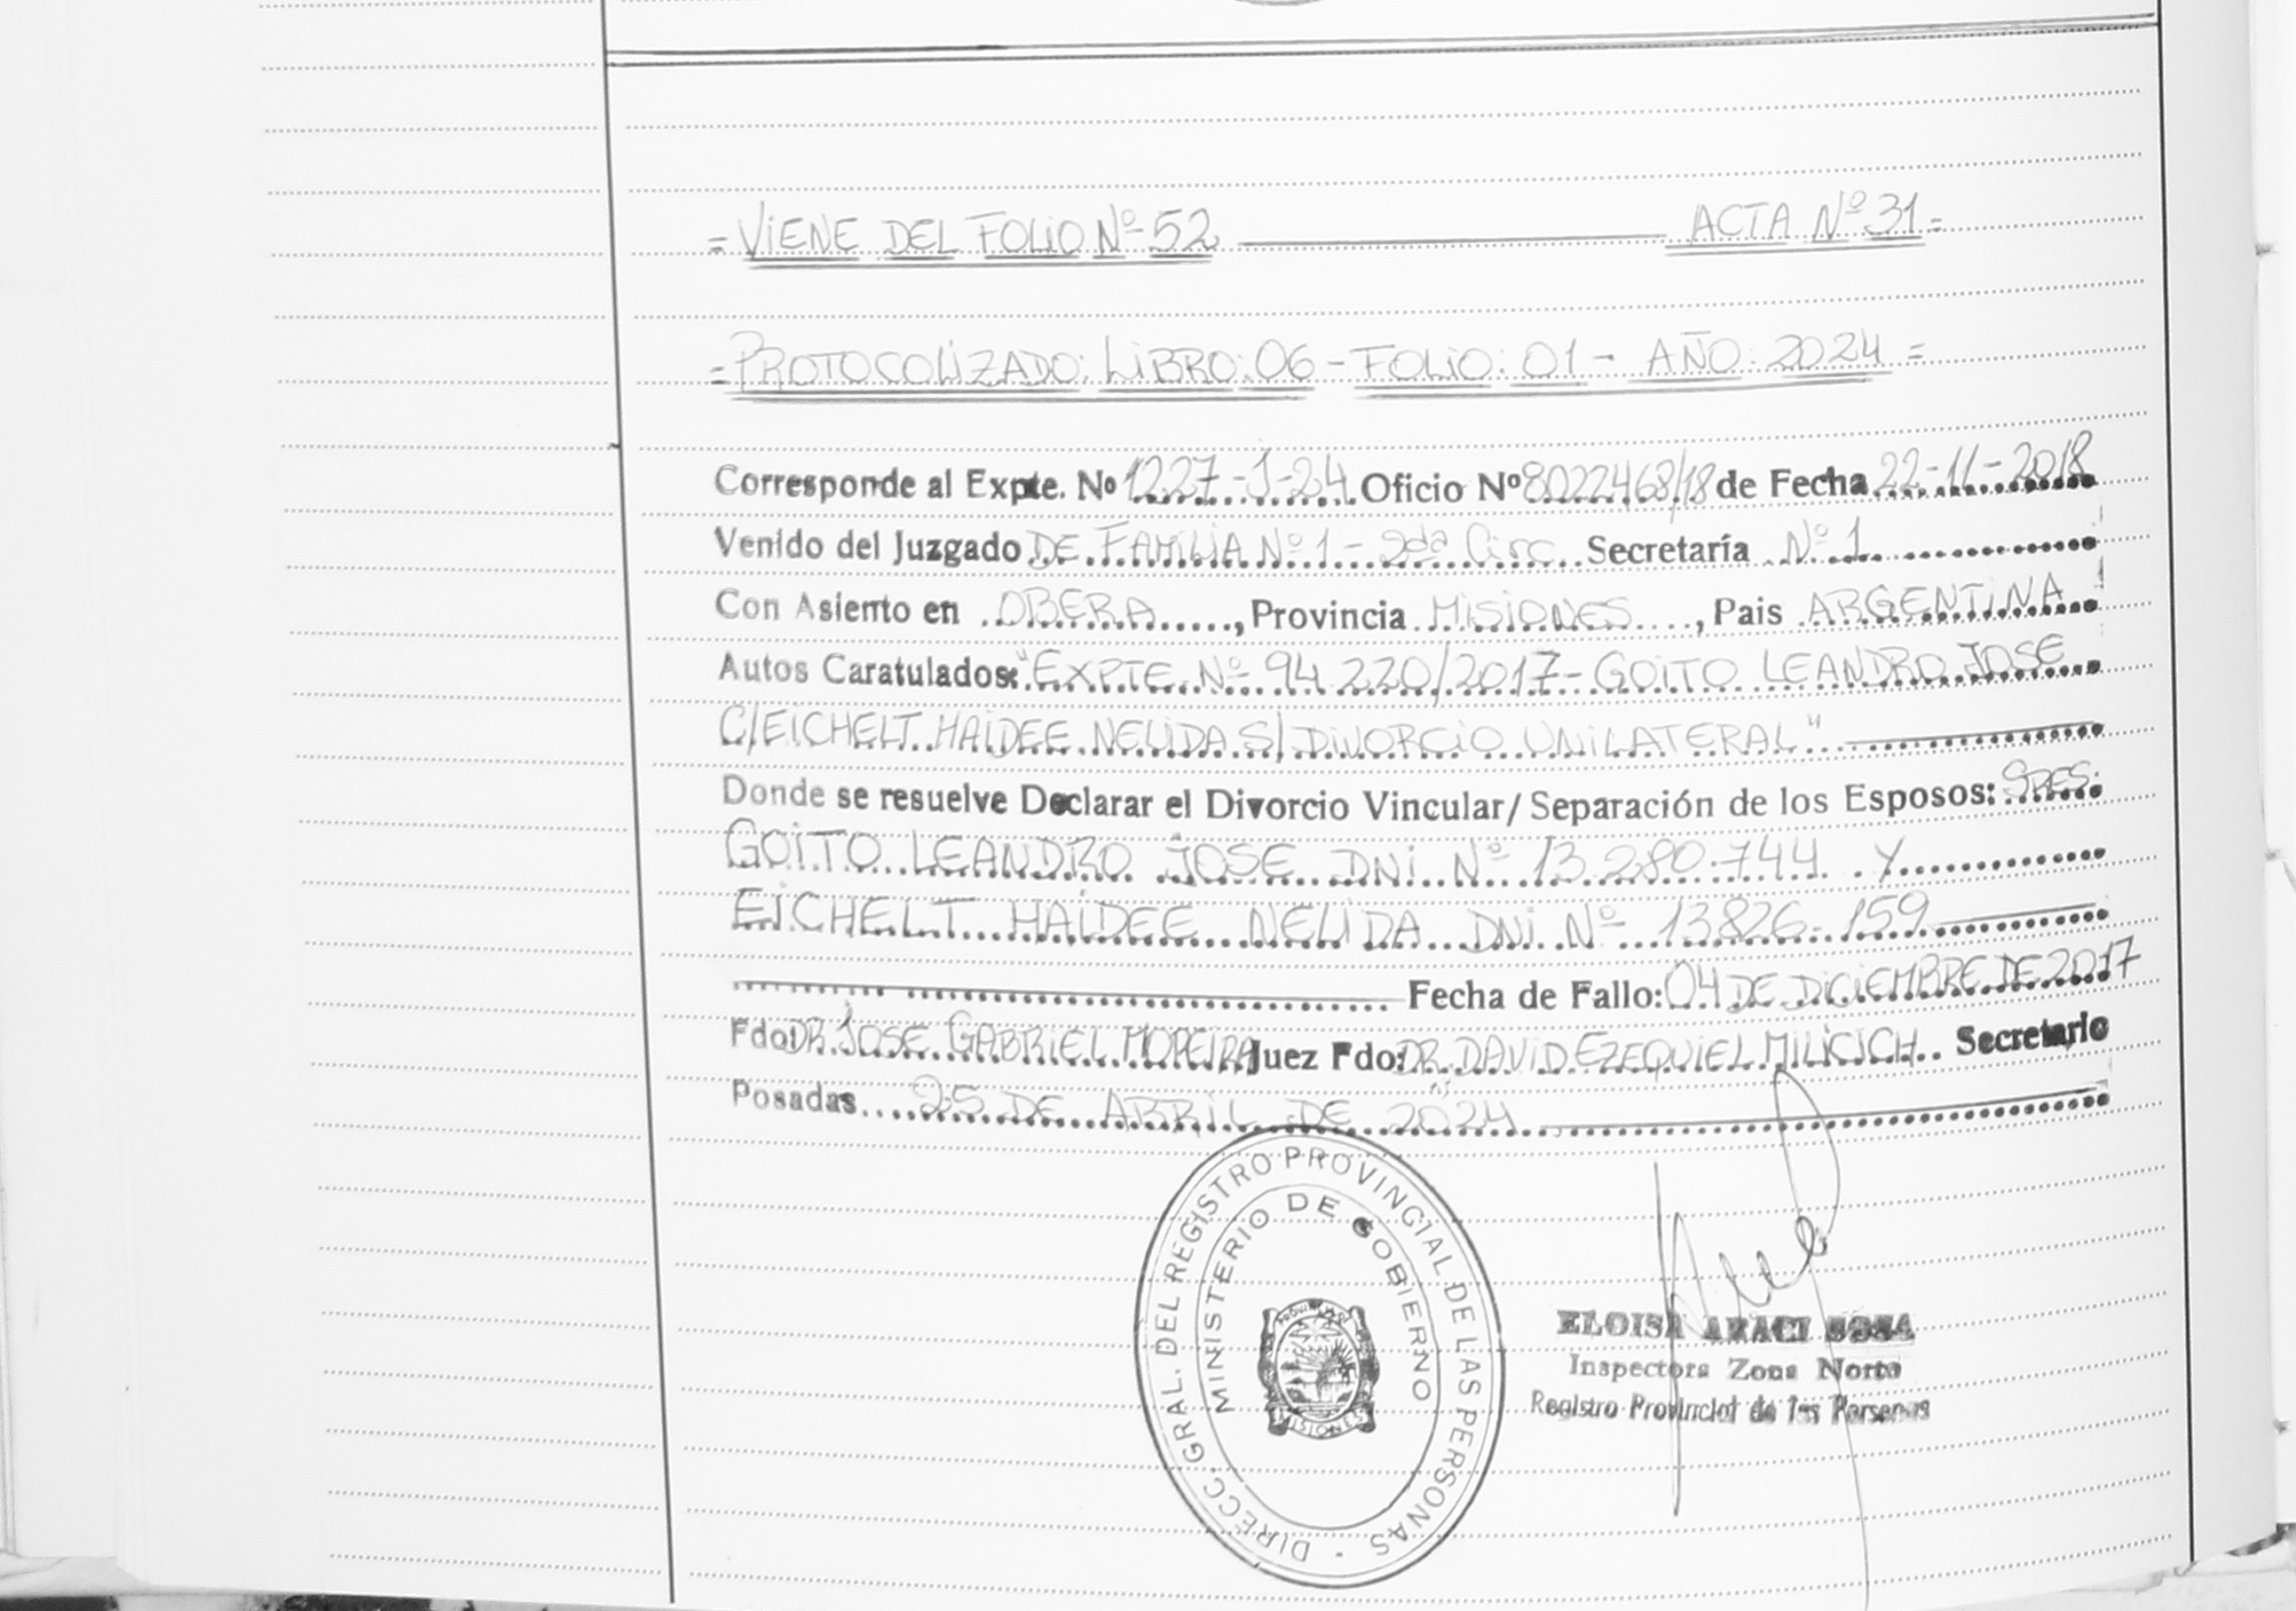 = VIENE DEL FOLIO Nº 52 ACTA Nº 31 =
= PROTOCOLIZADO: LIBRO: 06 - FOLIO: 01 - AÑO: 2024 =
Corresponde al Expte. Nº 1227-J-24 Oficio Nº 8022468/18 de Fecha 22-11-2018
Venido del Juzgado DE FAMILIA Nº 1 - 2da Circ. Secretaría Nº 1
Con Asiento en OBERA, Provincia MISIONES, Pais ARGENTINA
Autos Caratulados: "EXPTE Nº 94.220/2017 - GOITO LEANDRO JOSE
C/EICHELT HAIDEE NELIDA S/ DIVORCIO UNILATERAL"
Donde se resuelve Declarar el Divorcio Vincular/ Separación de los Esposos: SRES.
GOITO LEANDRO JOSE DNI Nº 13.280.744 Y
EICHELT HAIDEE NELIDA DNI Nº 13.826.159
Fecha de Fallo: 04 DE DICIEMBRE DE 2017
Fdo: DR. JOSE GABRIEL MOREIRA Juez Fdo: DR. DAVID EZEQUIEL MILICICH Secretario
Posadas 25 DE ABRIL DE 2024
DIRECC. GRAL. DEL REGISTRO PROVINCIAL DE LAS PERSONAS
MINISTERIO DE GOBIERNO
MISIONES
ELOISA ARACI SOSA
Inspectora Zona Norte
Registro Provincial de las Personas